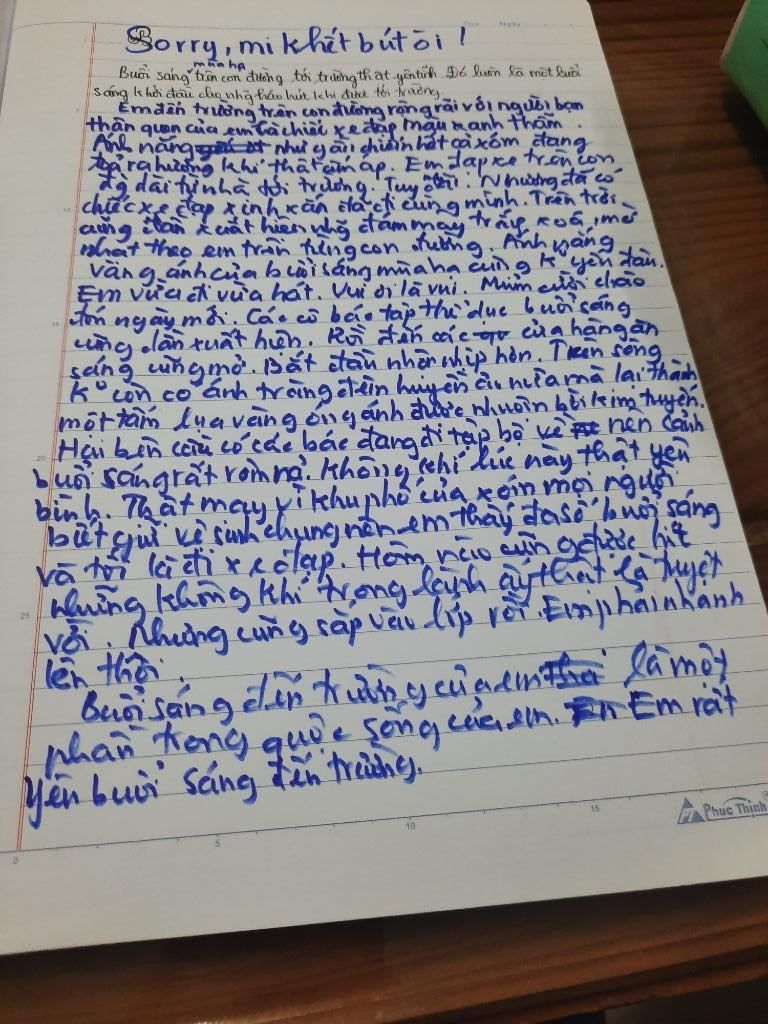 Sorry, mi khết bút òi !
mùa hạ
Buổi sáng trên con đường tới trường thật yên tĩnh. Đó luôn là một buổi
sáng khởi đầu cho những háo hức khi được tới trường.
Em đến trường trên con đường rộng rãi với người bạn
thân quen của em là chiếc xe đạp màu xanh thẫm.
Ánh nắng như gãi chiếu hết cả xóm đang
toả ra hương khí thật ấm áp. Em đạp xe trên con
đg dài từ nhà tới trường. Tuy dài. Nhưng đã có
chiếc xe đạp xinh xắn đã đi cùng mình. Trên trời
cũng dần xuất hiện nhg đám mây trắng xoá, mờ
nhạt theo em trên từng con đường. Ánh nắng
vàng ánh của buổi sáng mùa hạ cũng k yên đâu.
Em vừa đi vừa hát. Vui ơi là vui. Mỉm cười chào
đón ngày mới. Các cô bác tập thể dục buổi sáng
cũng dần xuất hiện. Rồi đến các cửa hàng ăn
sáng cũng mở. Bắt đầu nhộn nhịp hơn. Trên sông
k còn có ánh trăng đêm huyền ảo nữa mà lại thành
một tấm lụa vàng óng ánh được nhuộm bởi kim tuyến.
Hai bên cầu có các bác đang đi tập bộ về nên cảnh
buổi sáng rất rôm rả. Không khí lúc này thật yên
bình. Thật may vì khu phố của xóm mọi người
biết giữ vệ sinh chung nên em thấy đa số buổi sáng
và tối là đi xe đạp. Hôm nào cũng được hít
những không khí trong lành ấy thật là tuyệt
vời. Nhưng cũng sắp vào lớp rồi. Em phải nhanh
lên thôi.
Buổi sáng đến trường của em là một
phần trong quộc sống của em. Em rất
yên buổi sáng đến trường.
0 5 10 15
20
25
Phuc Thinh